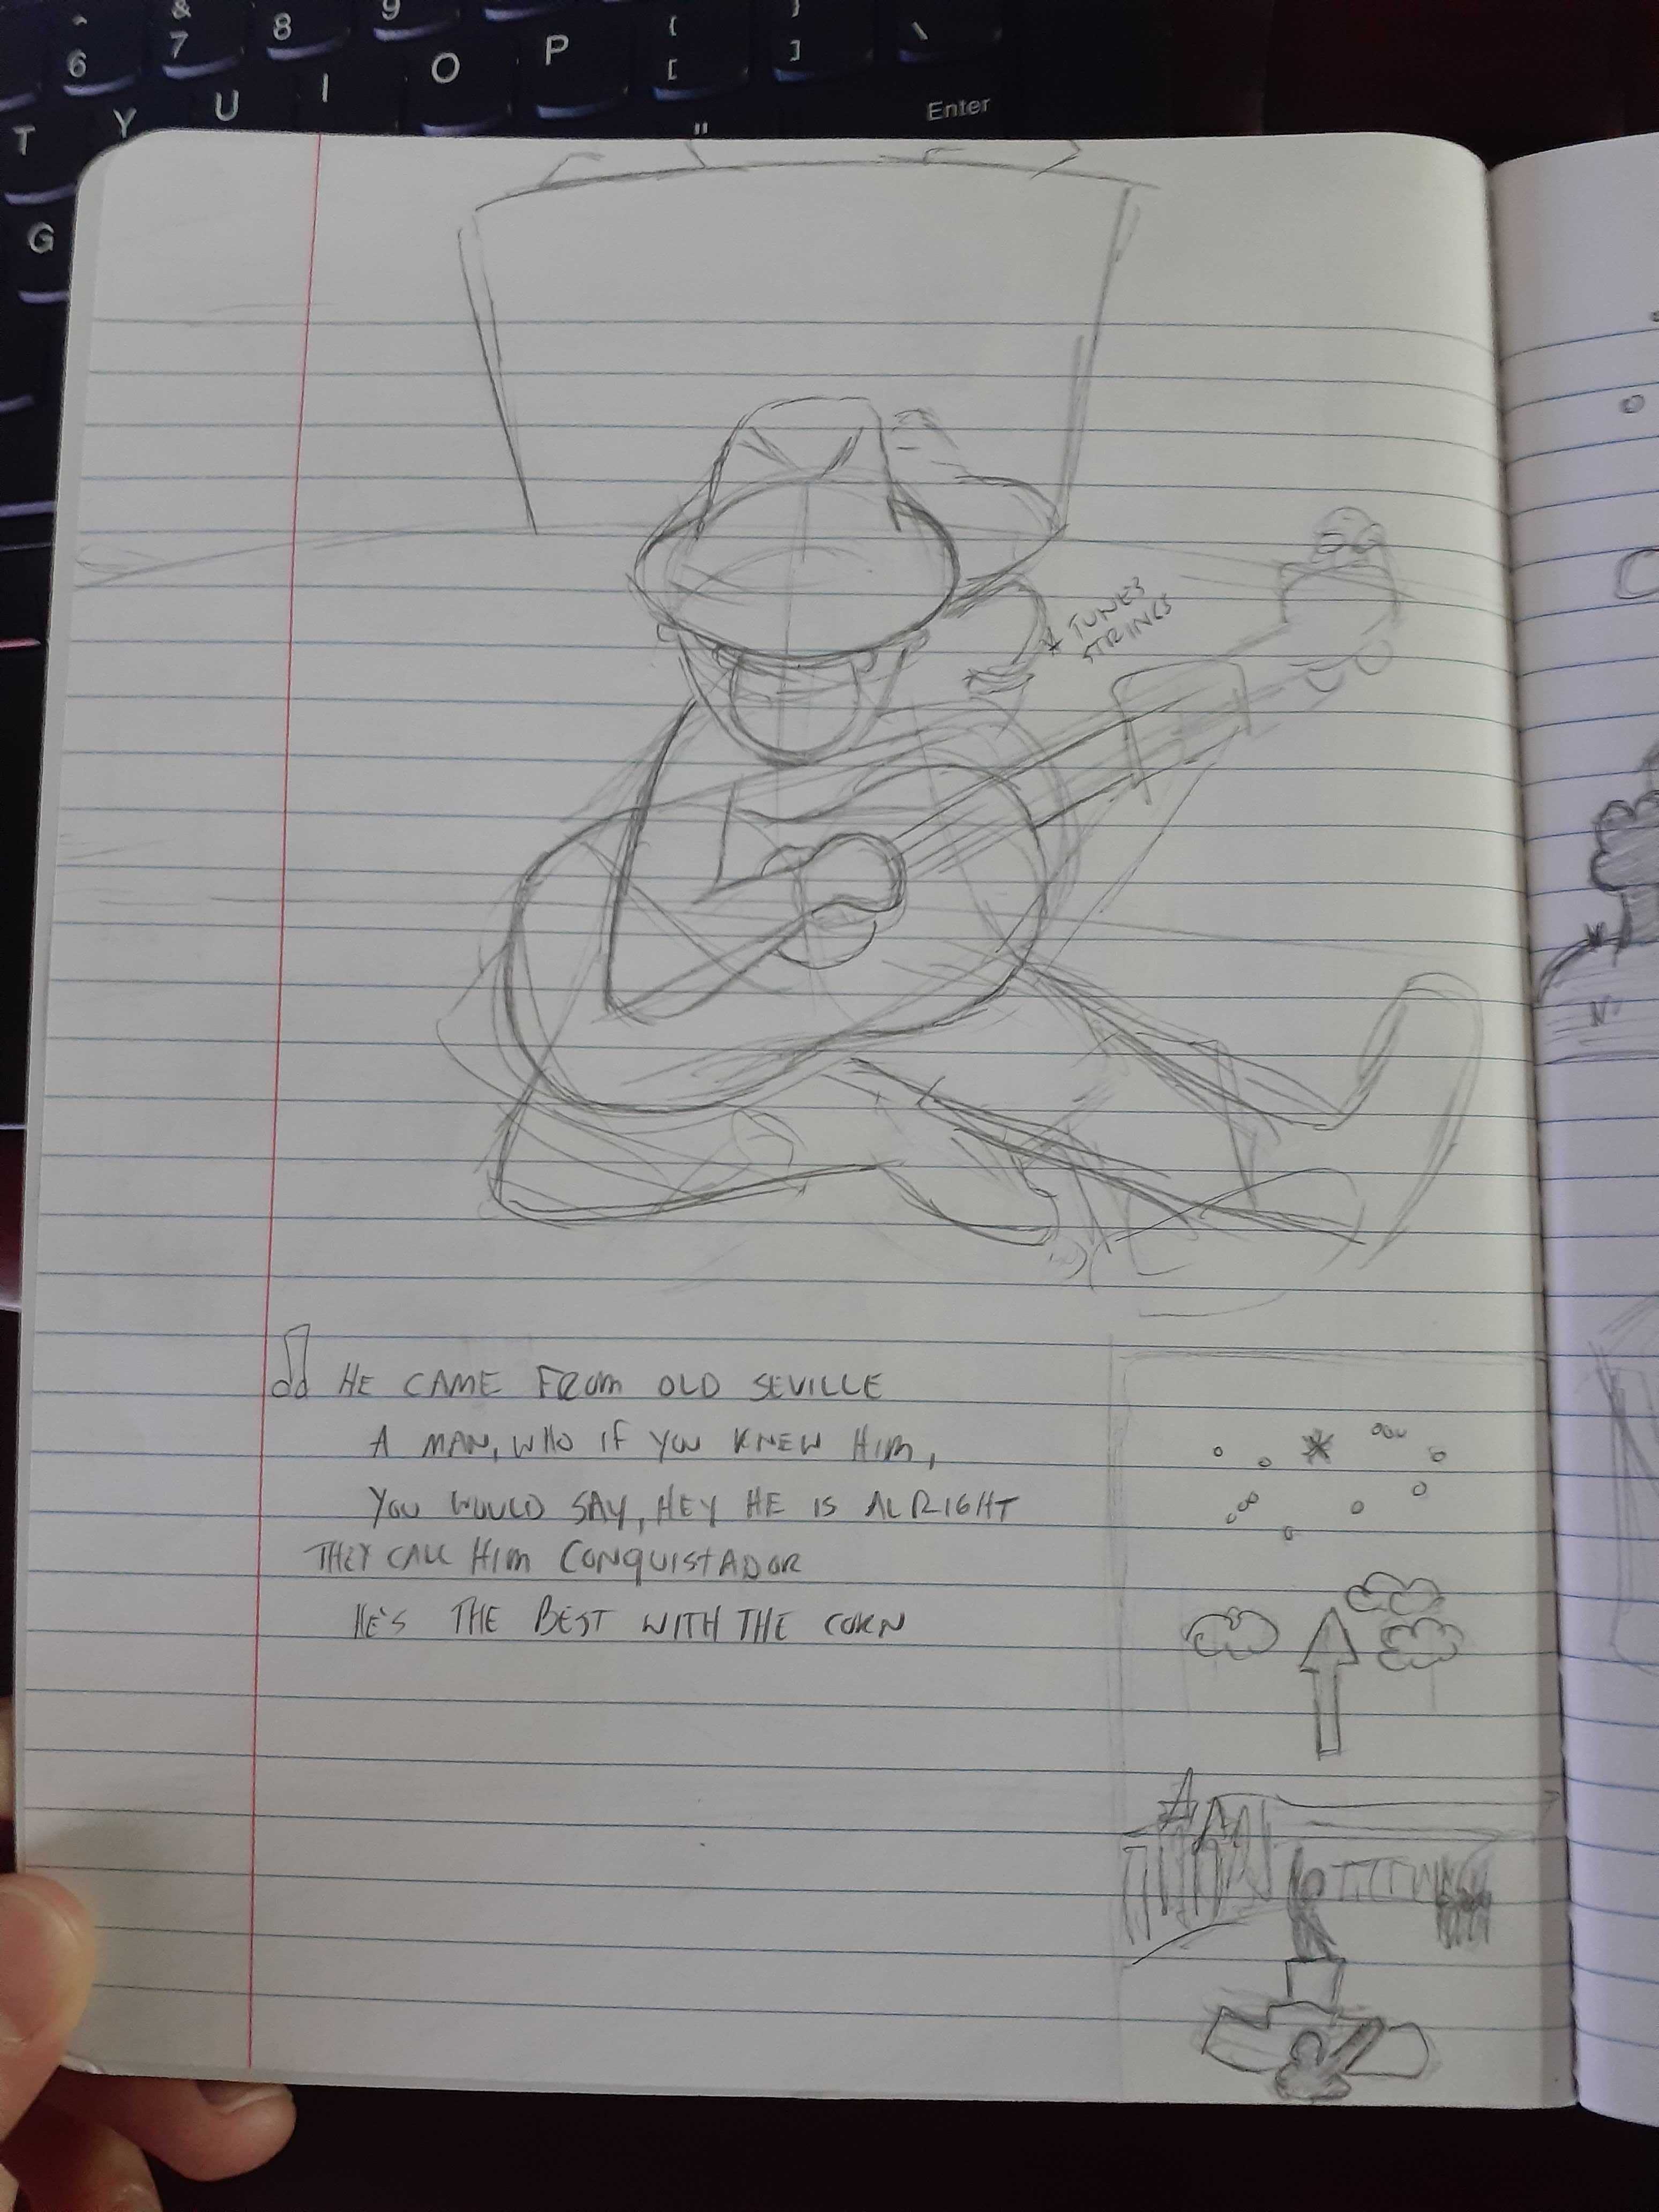 ^ & 9 { }
6 7 8 [ ] \
T Y U I O P
" Enter
G
* TUNES
STRINGS
HE CAME FROM OLD SEVILLE
A MAN, WHO IF YOU KNEW HIM,
YOU WOULD SAY, HEY HE IS ALRIGHT
THEY CALL HIM CONQUISTADOR
HE'S THE BEST WITH THE CORN